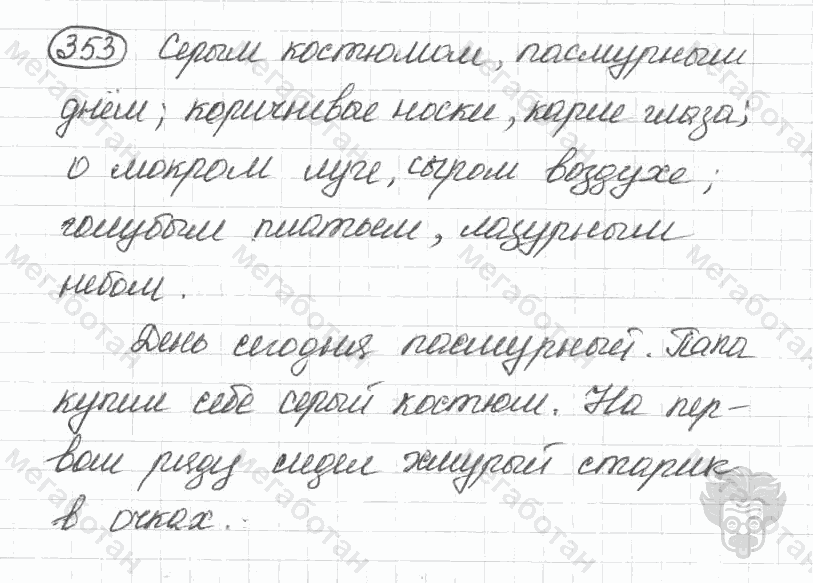 353 Серым костюмом, пасмурным
днём; коричневые носки, карие глаза;
о мокром луге, сыром воздухе;
голубым платьем, лазурным
небом.
День сегодня пасмурный. Папа
купил себе серый костюм. На пер-
вом ряду сидел хмурый старик
в очках.
мегаботан